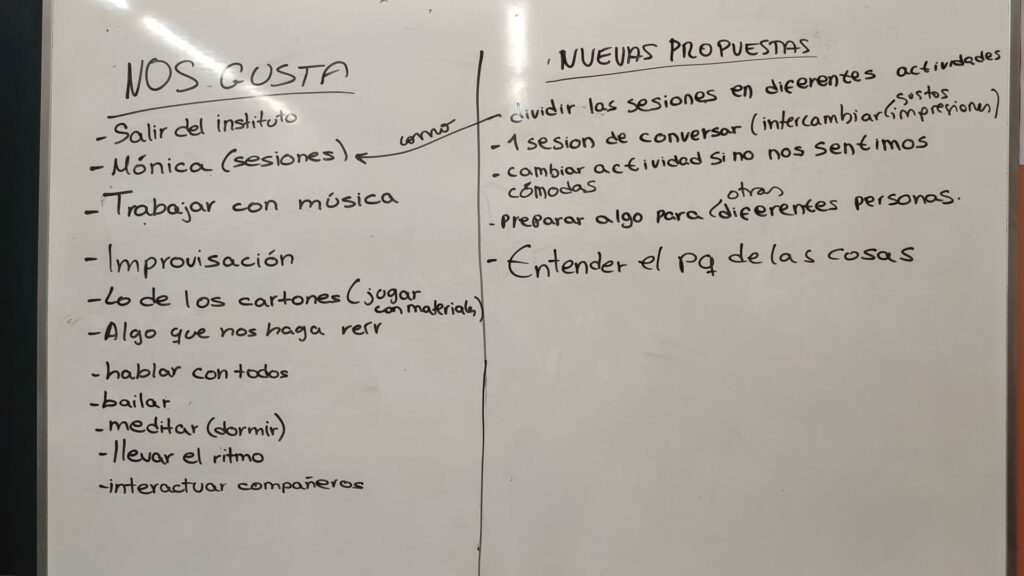 NOS GUSTA
- Salir del instituto
- Mónica (sesiones)
- Trabajar con música
- Improvisación
- Lo de los cartones (jugar
con materiales)
- Algo que nos haga reír
- hablar con todos
- bailar
- meditar (dormir)
- llevar el ritmo
- interactuar compañeros
como
NUEVAS PROPUESTAS
dividir las sesiones en diferentes actividades
gustos
- 1 sesion de conversar (intercambiar (impresiones)
- cambiar actividad si no nos sentimos
cómodas
otras
- preparar algo para (diferentes personas.
- Entender el pq de las cosas